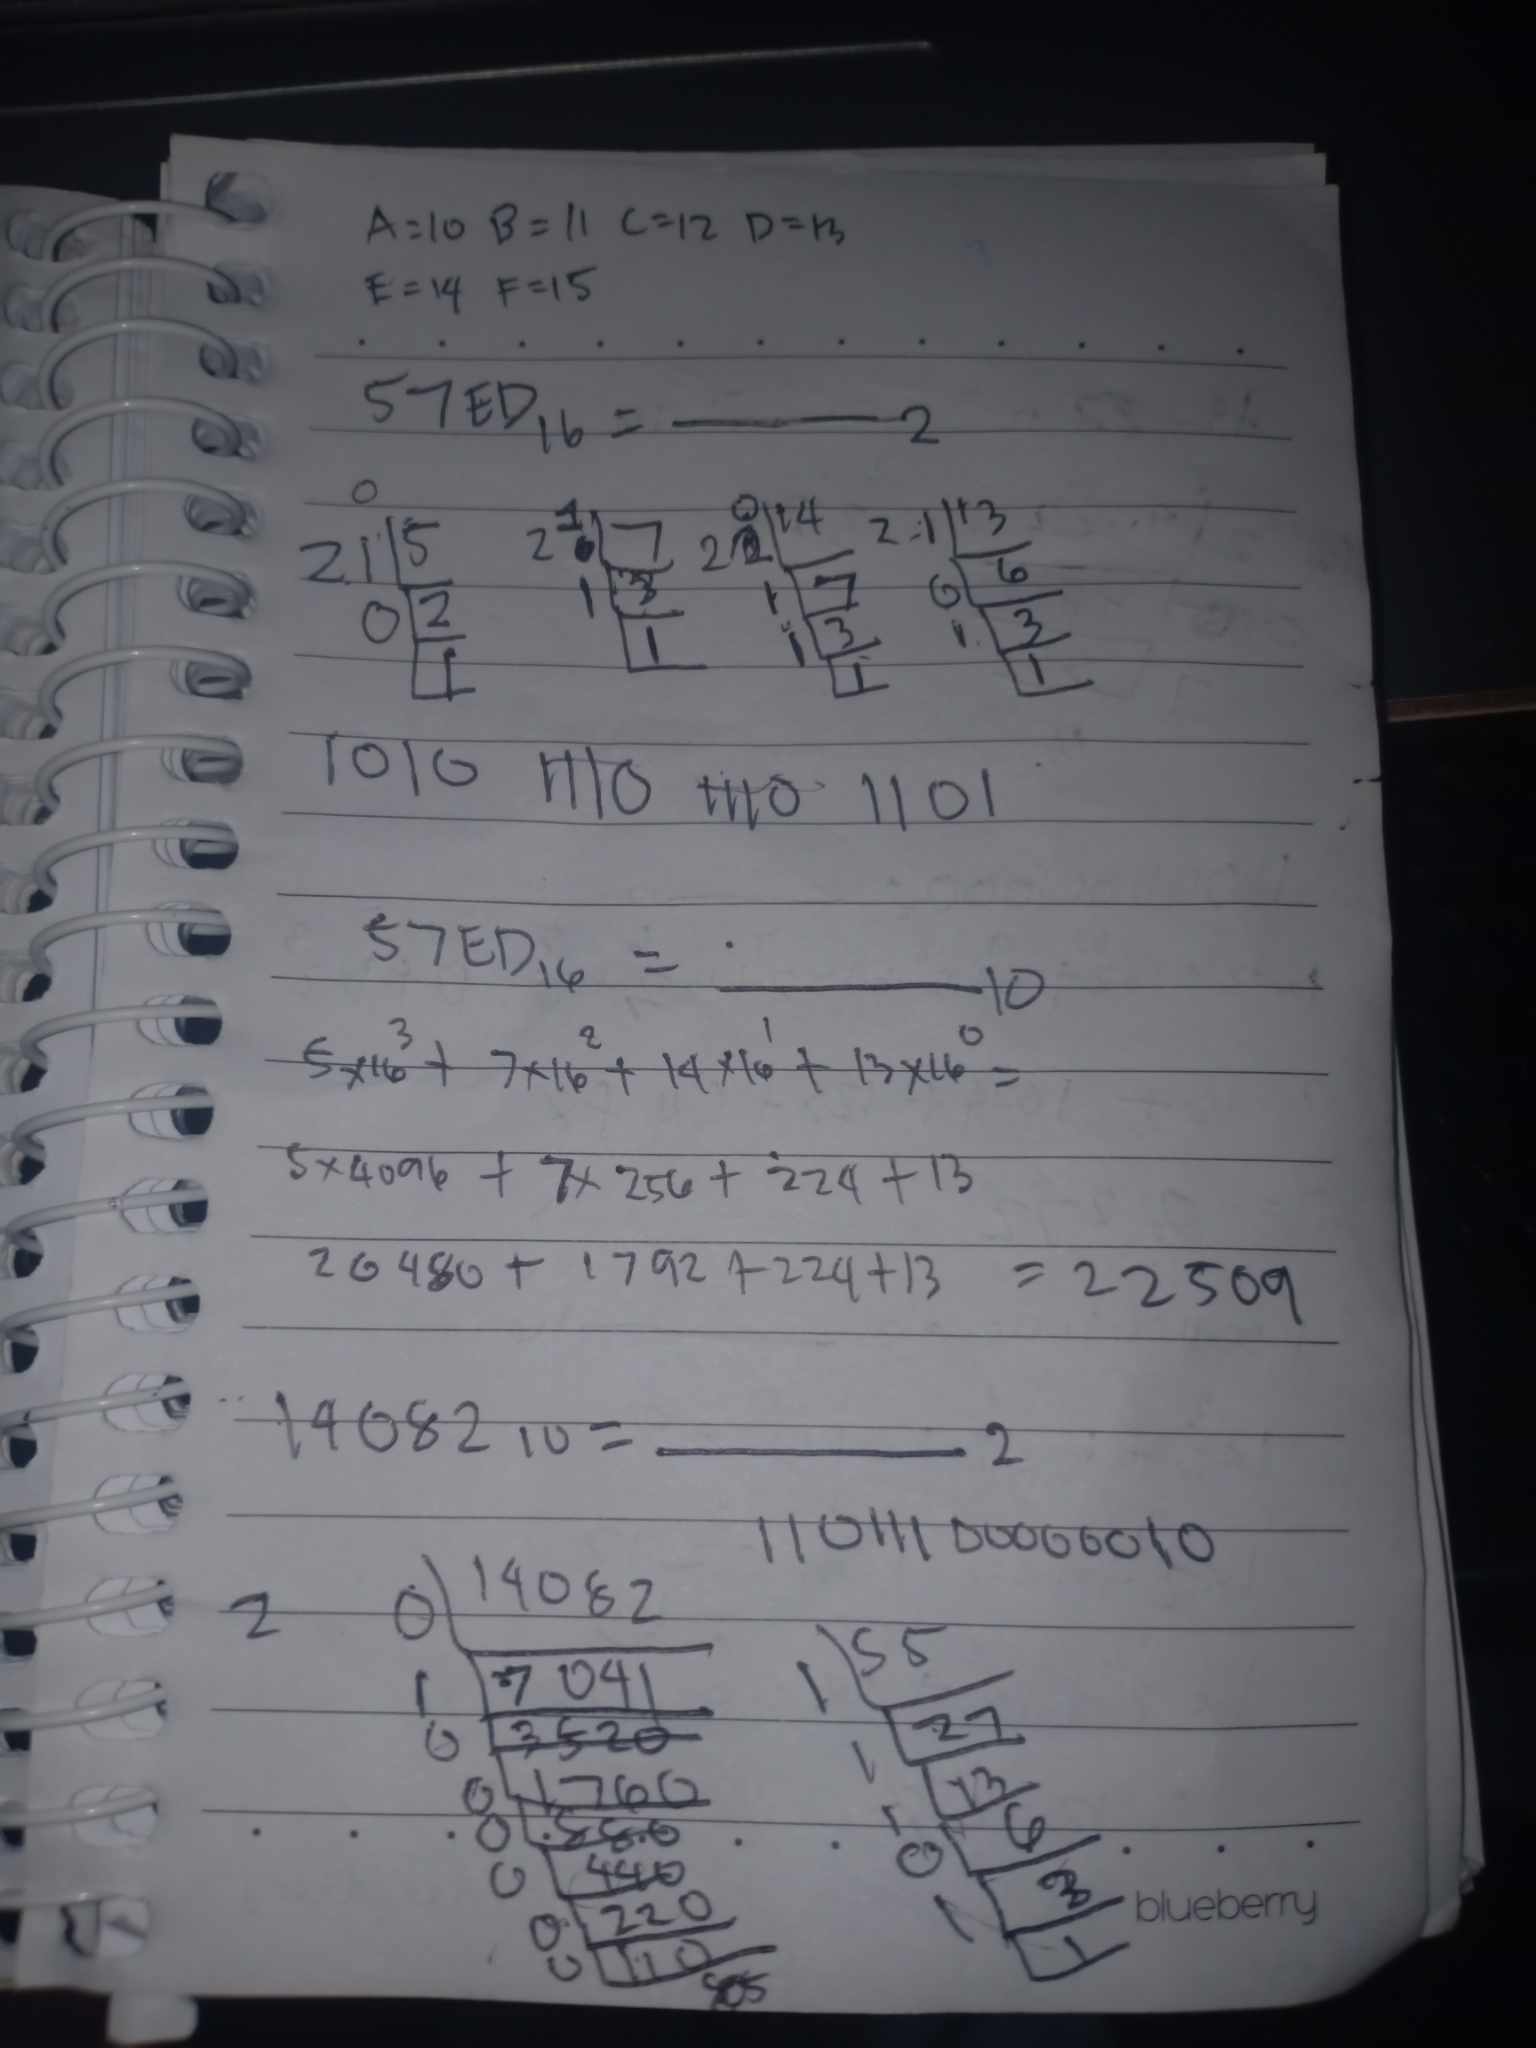 A=10 B=11 C=12 D=13
E=14 F=15
57ED16 = 2
0
21 5 2 1 7 2 0 14 2 1 13
0 2 1 3 1 7 0 6
1 1 1 3 1 3
1 1
1010 1110 1110 1101
57ED16 = 10
5x16³ + 7x16² + 14x16¹ + 13x16⁰ =
5x4096 + 7x256 + 224 + 13
20480 + 1792 + 224 + 13 = 22509
14082 10 = 2
11011100000010
2 0 14082
1 7041
0 3520
0 1760
0 880
0 440
0 220
0 110
55
1 55
1 27
1 13
0 6
1 3
1
blueberry